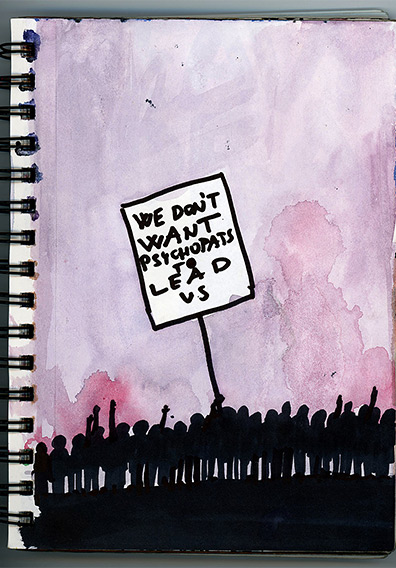 WE DON'T
WANT
PSYCHOPATS
TO
LEAD
US